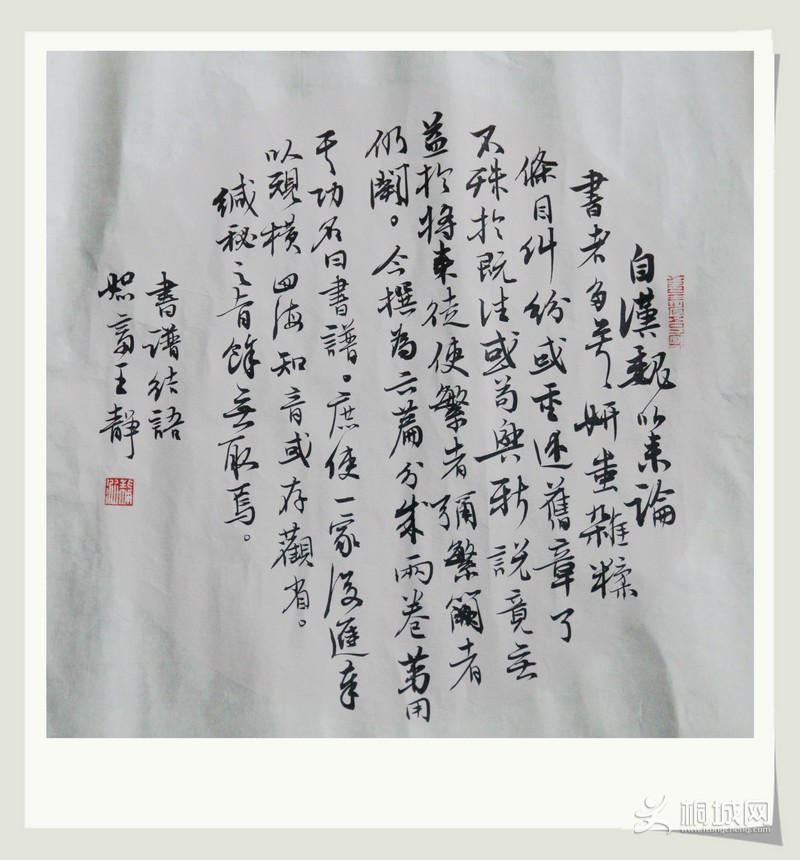 自漢魏以来論
書者多矣妍蚩雜糅
條目糾紛或重述舊章了
不殊於既往或苟興新説竟无
益於將来徒使繁者彌繁闕者
仍闕。今撰為六篇分成兩卷第用
其功名曰書譜。庶使一家後進奉
以規模四海知音或存觀省。
緘秘之旨餘无取焉。
書譜结語
王靜
桐城网
www.itongcheng.com